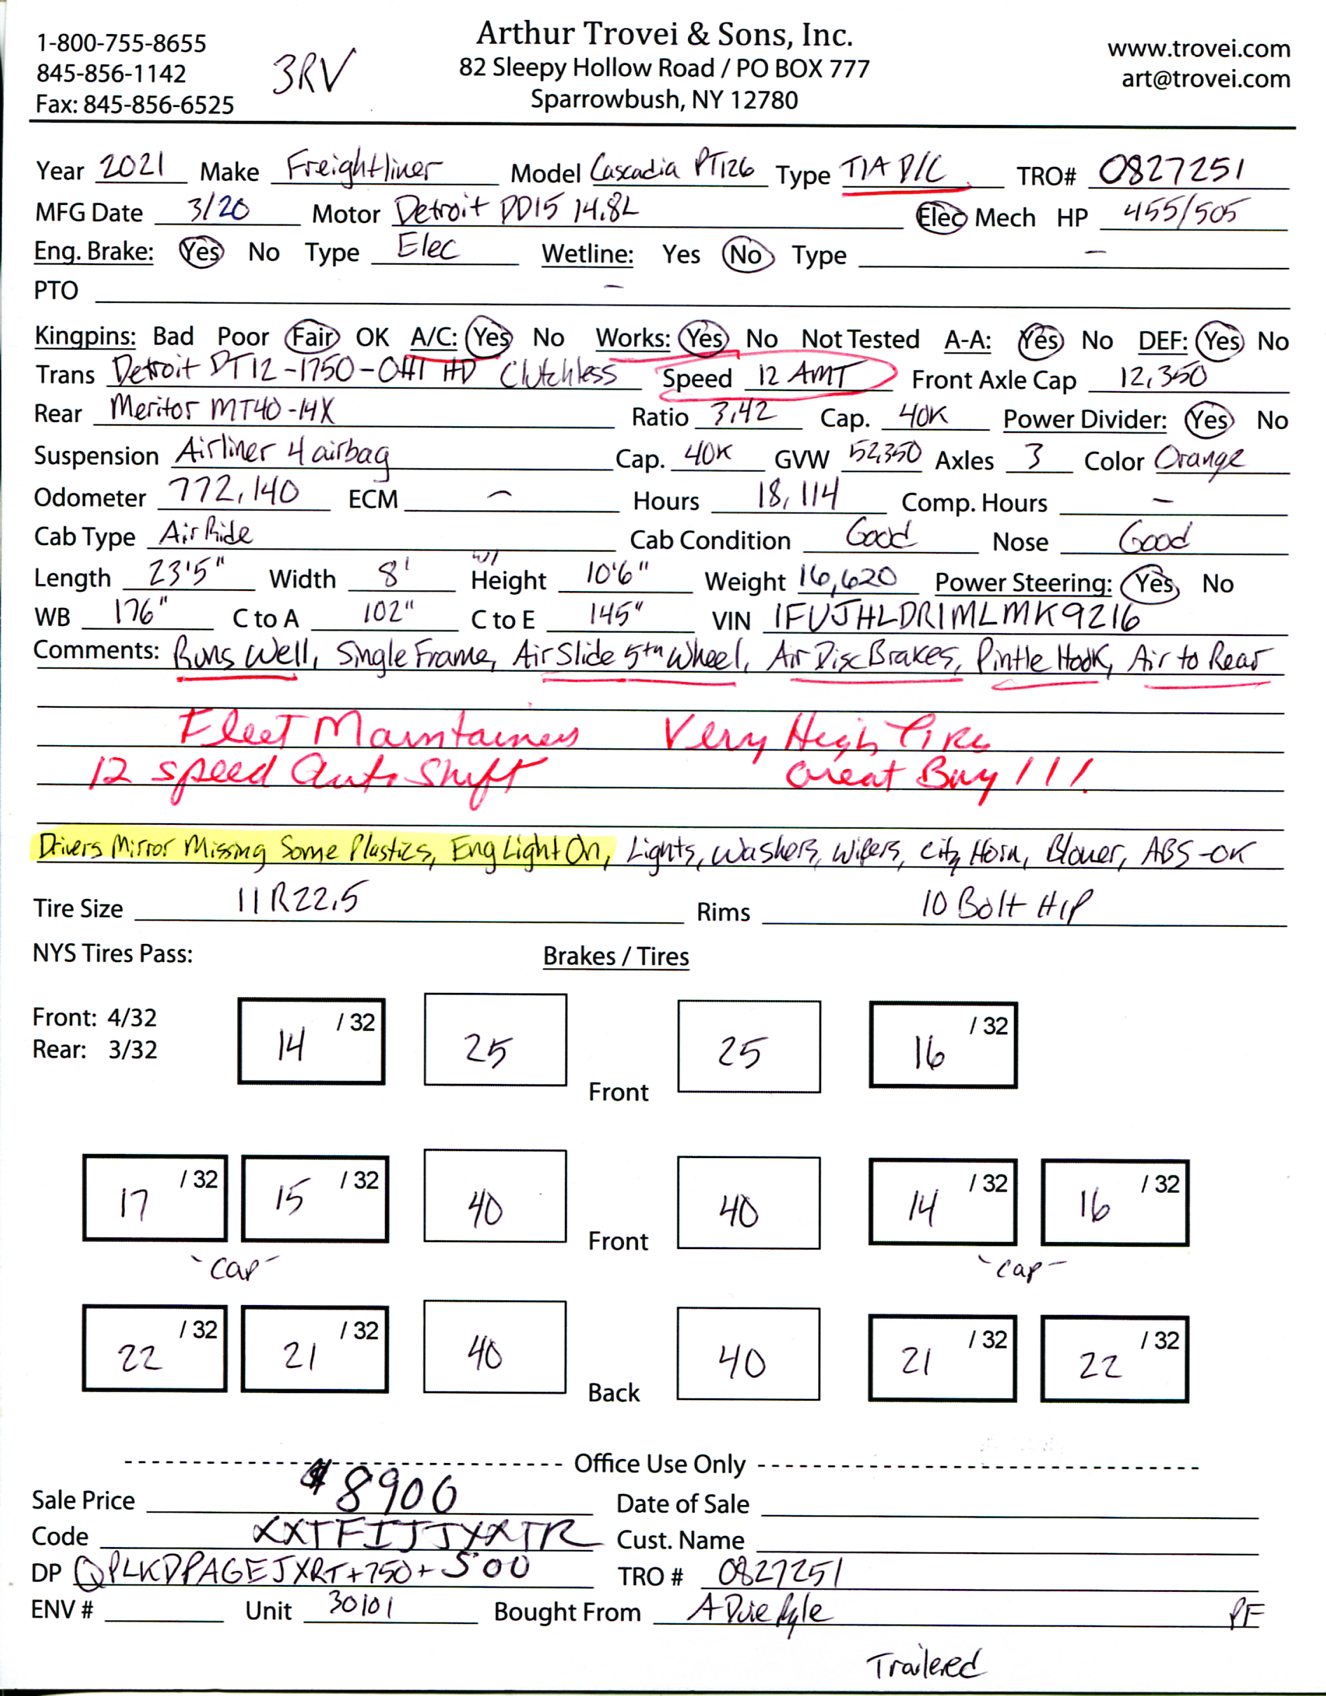 1-800-755-8655
845-856-1142
Fax: 845-856-6525
3RV
Arthur Trovei & Sons, Inc.
82 Sleepy Hollow Road / PO BOX 777
Sparrowbush, NY 12780
www.trovei.com
art@trovei.com
Year 2021 Make Freightliner Model Cascadia PT126 Type T/A D/C TRO# 0827251
MFG Date 3/20 Motor Detroit DD15 14.8L Elec Mech HP 455/505
Eng. Brake: Yes No Type Elec Wetline: Yes No Type –
PTO –
Kingpins: Bad Poor Fair OK A/C: Yes No Works: Yes No Not Tested A-A: Yes No DEF: Yes No
Trans Detroit DT12-1750-OH1 HD Clutchless Speed 12 AMT Front Axle Cap 12,350
Rear Meritor MT40-14X Ratio 3.42 Cap. 40K Power Divider: Yes No
Suspension Airliner 4 airbag Cap. 40K GVW 52,350 Axles 3 Color Orange
Odometer 772,140 ECM – Hours 18,114 Comp. Hours –
Cab Type Air Ride Cab Condition Good Nose Good
Length 23'5" Width 8' w/ Height 10'6" Weight 16,620 Power Steering: Yes No
WB 176" C to A 102" C to E 145" VIN 1FUJHLDR1MLMK9216
Comments: Runs Well, Single Frame, Air Slide 5th Wheel, Air Disc Brakes, Pintle Hook, Air to Rear
Fleet Maintained Very High Tire
12 speed Auto Shift Great Buy!!!
Drivers Mirror Missing Some Plastics, Eng Light On, Lights, Washers, Wipers, City Horn, Blower, ABS-OK
Tire Size 11R22.5 Rims 10 Bolt H/P
NYS Tires Pass: Brakes / Tires
Front: 4/32
Rear: 3/32
14 /32 25 Front 25 16 /32
17 /32 15 /32 40 Front 40 14 /32 16 /32
-Cap- -Cap-
22 /32 21 /32 40 Back 40 21 /32 22 /32
Office Use Only
Sale Price $8900 Date of Sale
Code XXTFIJJYXTR Cust. Name
DP QPLKDPAGEJXRT+750+500 TRO # 0827251
ENV # Unit 30101 Bought From A Duie Pyle PF
Trailered